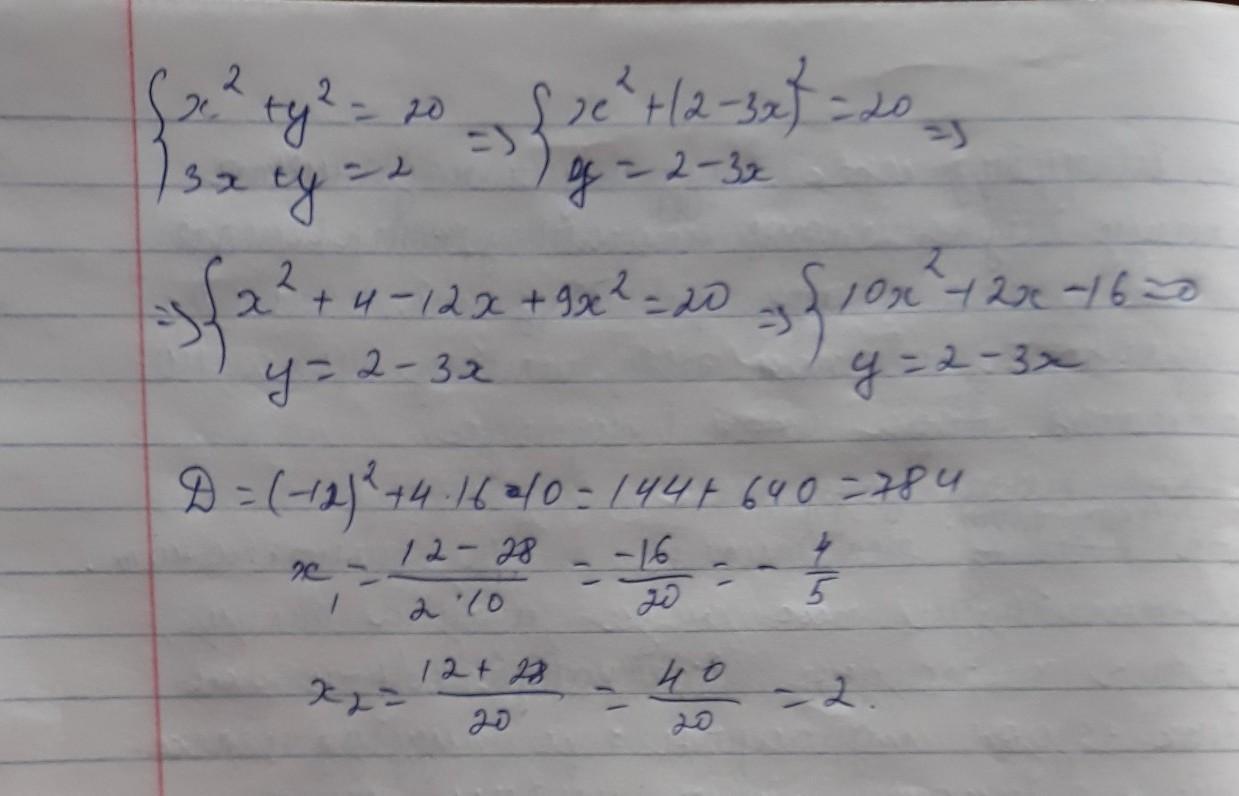 { x² + y² = 20 => { x² + (2 - 3x)² = 20 =>
3x + y = 2 y = 2 - 3x
=> { x² + 4 - 12x + 9x² = 20 => { 10x² - 12x - 16 = 0
y = 2 - 3x y = 2 - 3x
D = (-12)² + 4 · 16 · 10 = 144 + 640 = 784
x₁ = (12 - 28)/(2 · 10) = -16/20 = - 4/5
x₂ = (12 + 28)/20 = 40/20 = 2.